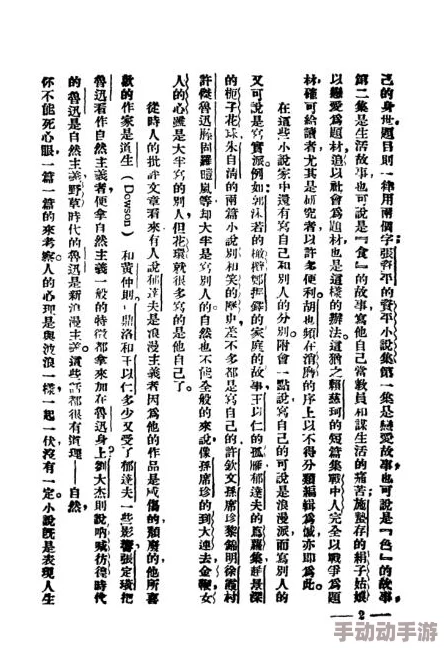 己的身世。題目則一律用兩個字；張資平的資平小說集第一集是戀愛故事，也可說是『色』的故事，
第二集是生活故事，也可說是『食』的故事，寫他自己當教員和謀生活的痛苦；施蟄存的絹子姑娘
以戀愛為題材，追以社會為題材，也是這樣的辦法。這猶之賴慈珂的短篇集戰中人完全以戰爭為題
材，確可給讀者尤其是研究者以許多便利。胡也頻在消磨的序上以不得分類編輯為憾，亦即為此。
在這些小說家中還有寫自己和別人的分別。附會一點說，寫自己的可說是浪漫派，而寫別人的
又可說是寫實派。例如：郭沫若的橄欖，鄭振鐸的家庭的故事，王以仁的孤雁，郁達夫的蔦蘿集，許欽文
的梔子花球，朱自清的兩篇小說別和笑的歷史，差不多都是寫自己的；許欽文，孫席珍，黎錦明，徐霞村，
許傑，魯迅，滕固，羅暟嵐等，却大半是寫別人的。自然也不能全般的來說，像孫席珍的到大連去，金鞭，女
人的心，雖是大半寫的別人，但花環就很多寫的是他自己了。
從時人的批評文章看來，有人說郁達夫是浪漫主義者，因為他的作品是感傷的，頹廢的，他所喜
歡的作家是道生（Dowson）和黃仲則。鼎洛和王以仁多少又受了郁達夫一些影響。張定璜把
魯迅看作自然主義者，便拿自然主義一般的特徵都拿來加在魯迅身上；劉大杰則說吶喊彷徨時代
的魯迅是自然主義，野草時代的魯迅是新浪漫主義。這些話都很有道理——自然，
你不能死心眼，一篇一篇的來考察。人的心理是與波浪一樣，一起一伏，沒有一定。小說既是表現人生
— 2 —
手动动手游